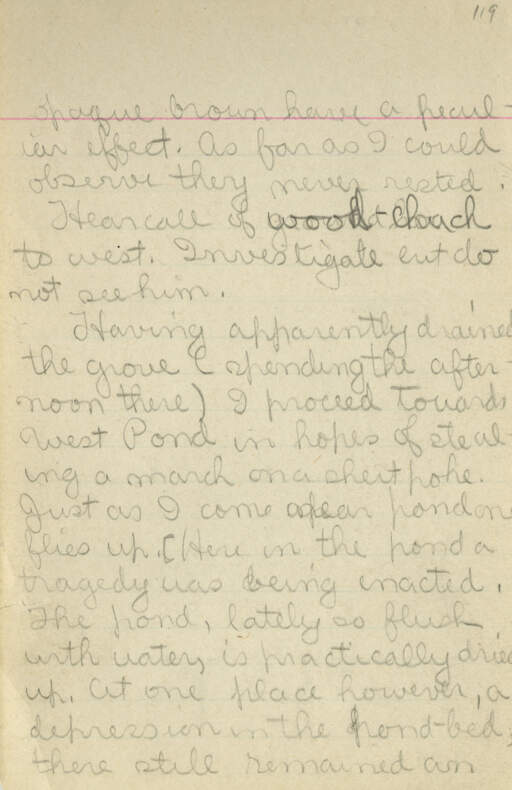 119
opaque brown have a pecul-
iar effect. As far as I could
observe they never rested.
Hear call of wood-chuck
to west. Investigate but do
not see him.
Having apparently drained
the grove (spending the after-
noon there) I proceed towards
West Pond in hopes of steal-
ing a march on a shitepoke.
Just as I come near pond one
flies up. [Here in the pond a
tragedy was being enacted.
The pond, lately so flush
with water, is practically dried
up. At one place however, a
depression in the pond-bed,
there still remained an